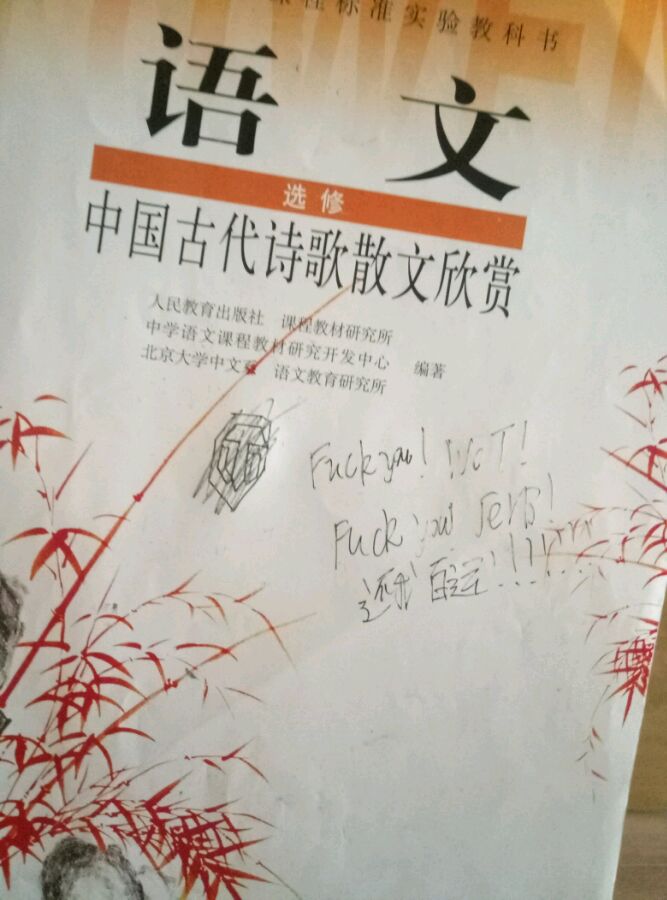 课程标准实验教科书
语文
选修
中国古代诗歌散文欣赏
人民教育出版社 课程教材研究所
中学语文课程教材研究开发中心 编著
北京大学中文系 语文教育研究所
Fuck you! WOT!
Fuck you! SerB!
还我百运!!!!!!!